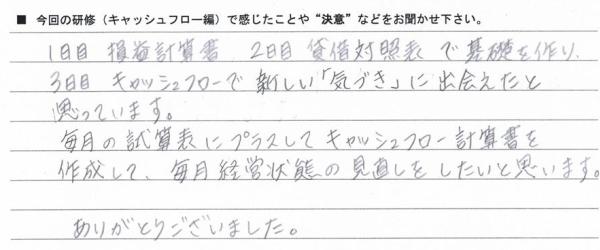 ■ 今回の研修（キャッシュフロー編）で感じたことや“決意”などをお聞かせ下さい。
1日目 損益計算書 2日目 貸借対照表で基礎を作り、
3日目 キャッシュフローで新しい「気づき」に出会えたと
思っています。
毎月の試算表にプラスしてキャッシュフロー計算書を
作成して、毎月経営状態の見直しをしたいと思います。
ありがとうございました。